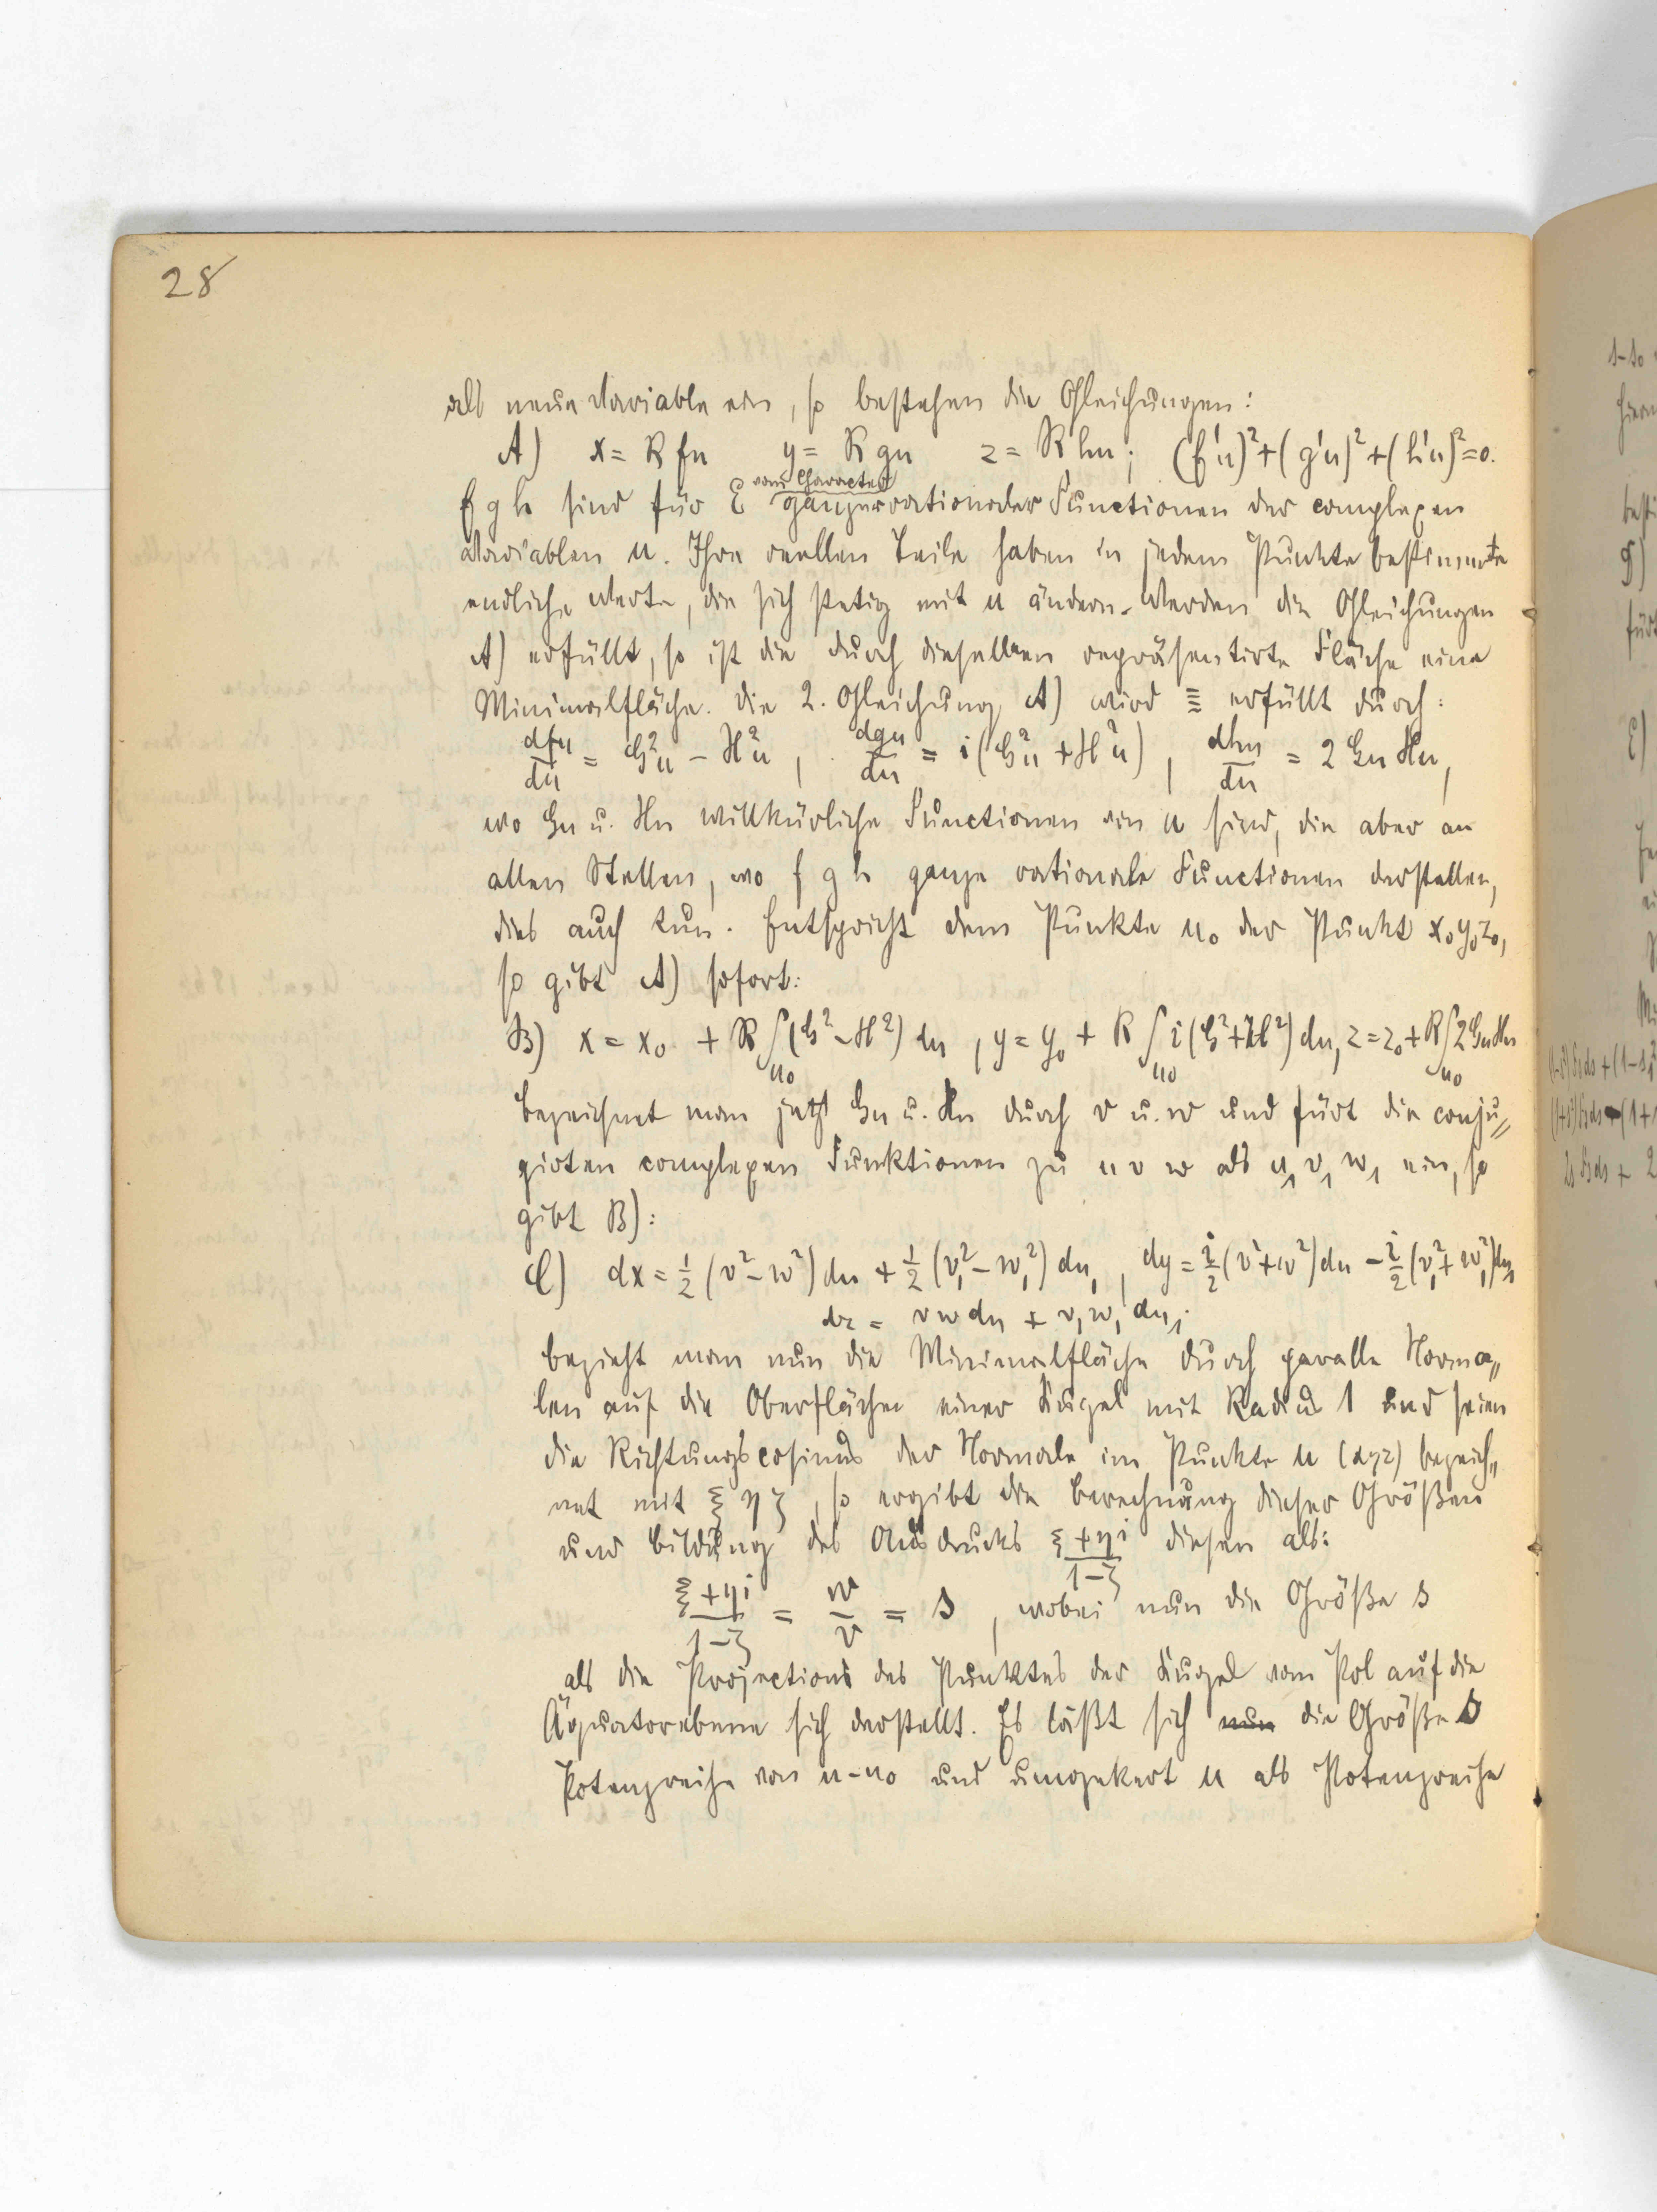 28
als neue Variable ein, so bestehen die Gleichungen:
A) x = R fu y = R gu z = R hu; (f'u)²+(g'u)²+(h'u)²=0.
vom Character
f g h sind für E ganzer rationaler Functionen der complexen
Variablen u. Ihre reellen Teile haben in jedem Punkte bestimmte
endliche Werte, die sich stetig mit u ändern. Werden die Gleichungen
A) erfüllt, so ist die durch dieselben repräsentirte Fläche eine
Minimalfläche. Die 2. Gleichung A) wird ≡ erfüllt durch:
dfu/du = G²u − H²u, dgu/du = i(G²u + H²u), dhu/du = 2 Gu Hu,
wo Gu u. Hu willkürliche Functionen von u sind, die aber an
allen Stellen, wo f g h ganze rationale Functionen darstellen,
dies auch tun. Entspricht dem Punkte u₀ der Punkt x₀y₀z₀,
so gibt A) sofort:
B) x = x₀ + R∫u₀(G²−H²) du, y = y₀ + R∫u₀ i(G²+H²) du, z = z₀ + R∫u₀ 2GuHu
bezeichnet man jetzt Gu u. Hu durch v u. w und fürt die conju⸗
girten complexen Funktionen zu u v w als u₁ v₁ w₁ ein, so
gibt B):
C) dx = ½ (v²−w²) du + ½ (v₁²−w₁²) du₁, dy = i/2 (v²+w²) du − i/2 (v₁²+w₁²) du₁
dz = v w du + v₁ w₁ du₁.
bezieht man nun die Minimalfläche durch paralle Norma⸗
len auf die Oberflächen einer Kugel mit Radius 1 und seien
die Richtungscosinus der Normale im Punkte u (xyz) bezeich⸗
net mit ξ η ζ, so ergibt die Berechnung dieser Größen
und Bildung des Ausdrucks (ξ+ηi)/(1−ζ) diesen als:
(ξ+ηi)/(1−ζ) = w/v = s, wobei nun die Größe s
als die Projections des Punktes der Kugel vom Pol auf die
Äquatorebene sich darstellt. Es läßt sich nun die Größe s
Potenzreihe von u−u₀ und umgekert u als Potenzreihe